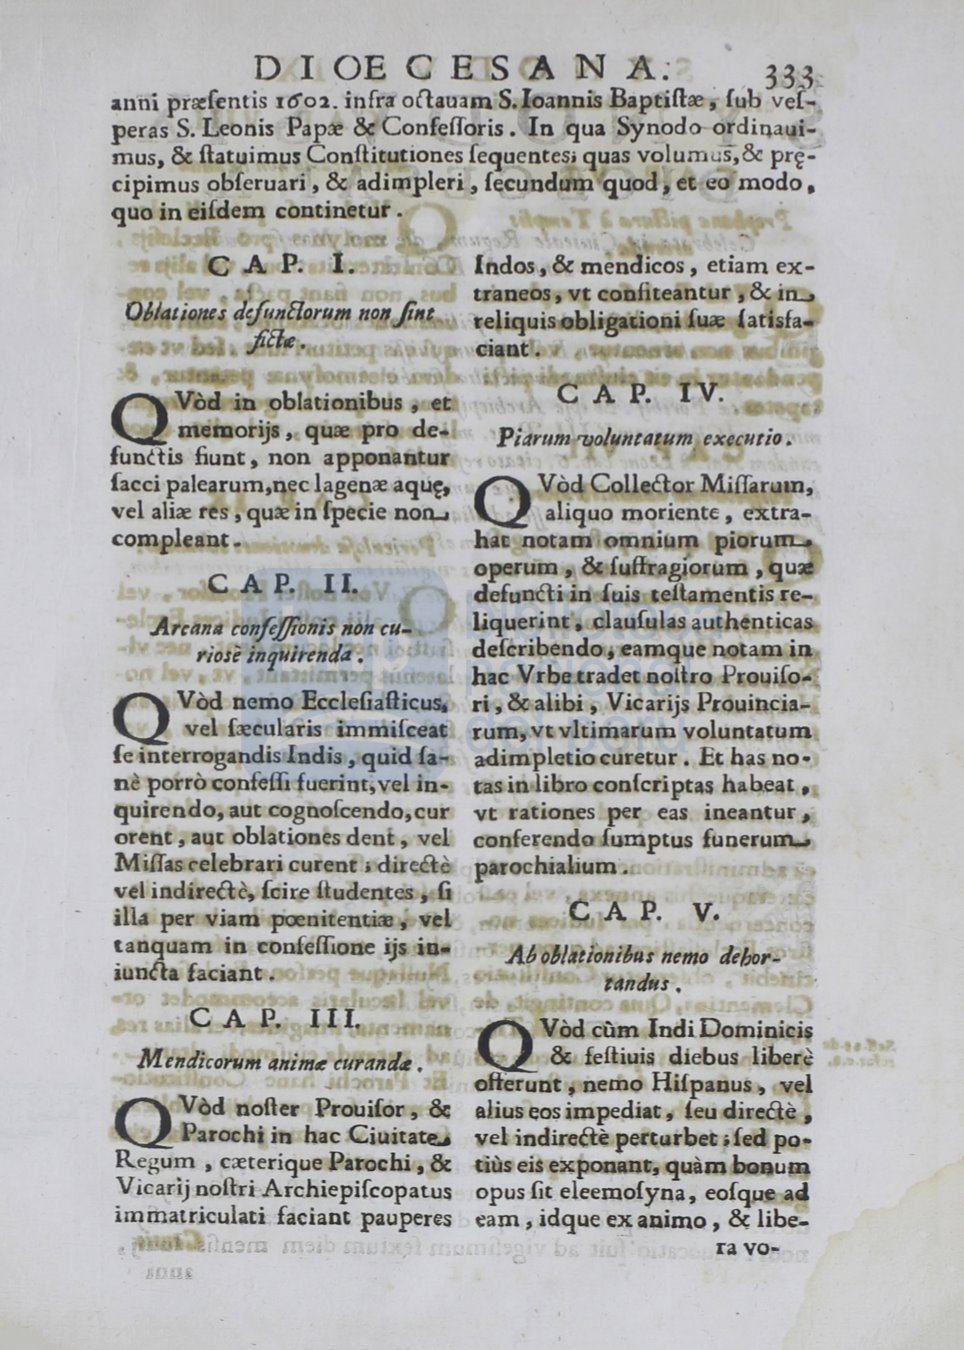 DIOECESANA. 333
anni præsentis 1602. infra octauam S. Ioannis Baptistæ, sub ves-
peras S. Leonis Papæ & Confessoris. In qua Synodo ordinaui-
mus, & statuimus Constitutiones sequentes; quas volumus, & prę-
cipimus obseruari, & adimpleri, secundum quod, et eo modo,
quo in eisdem continetur.
CAP. I.
Oblationes defunctorum non sint
fictæ.
QVòd in oblationibus, et
memorijs, quæ pro de-
functis fiunt, non apponantur
sacci palearum, nec lagenæ aquę,
vel aliæ res, quæ in specie non
compleant.
CAP. II.
Arcana confessionis non cu-
riosè inquirenda.
QVòd nemo Ecclesiasticus,
vel sæcularis immisceat
se interrogandis Indis, quid sa-
nè porrò confessi fuerint, vel in-
quirendo, aut cognoscendo, cur
orent, aut oblationes dent, vel
Missas celebrari curent; directè
vel indirectè, scire studentes, si
illa per viam pœnitentiæ, vel
tanquam in confessione ijs in-
iuncta faciant.
CAP. III.
Mendicorum animæ curandæ.
QVòd noster Prouisor, &
Parochi in hac Ciuitate
Regum, cæterique Parochi, &
Vicarij nostri Archiepiscopatus
immatriculati faciant pauperes
Indos, & mendicos, etiam ex-
traneos, vt confiteantur, & in
reliquis obligationi suæ satisfa-
ciant.
CAP. IV.
Piarum voluntatum executio.
QVòd Collector Missarum,
aliquo moriente, extra-
hat notam omnium piorum
operum, & suffragiorum, quæ
defuncti in suis testamentis re-
liquerint, clausulas authenticas
describendo, eamque notam in
hac Vrbe tradet nostro Prouiso-
ri, & alibi, Vicarijs Prouincia-
rum, vt vltimarum voluntatum
adimpletio curetur. Et has no-
tas in libro conscriptas habeat,
vt rationes per eas ineantur,
conferendo sumptus funerum
parochialium.
CAP. V.
Ab oblationibus nemo dehor-
tandus.
QVòd cùm Indi Dominicis
& festiuis diebus liberè
offerunt, nemo Hispanus, vel
alius eos impediat, seu directè,
vel indirectè perturbet; sed po-
tiùs eis exponant, quàm bonum
opus sit eleemosyna, eosque ad
eam, idque ex animo, & libe-
ra vo-